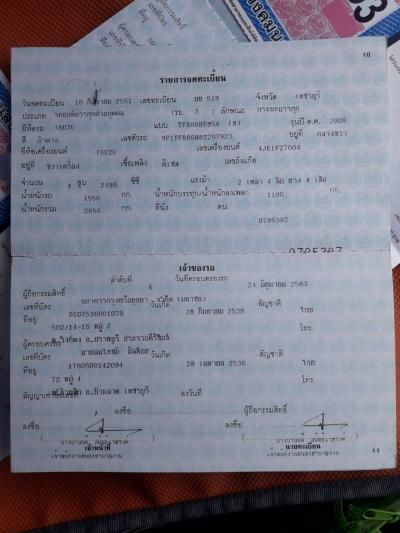 16
รายการจดทะเบียน
วันจดทะเบียน 16 กันยายน 2551 เลขทะเบียน บท 519 จังหวัด เพชรบุรี
ประเภท รถยนต์บรรทุกส่วนบุคคล (รย. 3) ลักษณะ กระบะบรรทุก
ยี่ห้อรถ ISUZU แบบ TFR86HPMSA (M) รุ่นปี ค.ศ. 2008
สี น้ำตาล เลขตัวรถ MP1TFR86H8T207923 อยู่ที่ กลางขวา
ยี่ห้อเครื่องยนต์ ISUZU เลขเครื่องยนต์ 4JK1FZ7004
อยู่ที่ ขวาเครื่อง เชื้อเพลิง ดีเซล เลขถังแก๊ส
จำนวน 4 สูบ 2499 ซีซี แรงม้า 2 เพลา 4 ล้อ ยาง 4 เส้น
น้ำหนักรถ 1550 กก. น้ำหนักบรรทุก/น้ำหนักลงเพลา 1100 กก.
น้ำหนักรวม 2650 กก. ที่นั่ง คน
0785387
0785387
เจ้าของรถ
ลำดับที่ 4 วันที่ครอบครองรถ 24 มิถุนายน 2563
ผู้ถือกรรมสิทธิ์ ธนาคารกรุงศรีอยุธยา จำกัด (มหาชน)
เลขที่บัตร 0107536001079 วันเกิด 28 กันยายน 2536 สัญชาติ ไทย
ที่อยู่ 502/14-15 หมู่ 2 โทร.
ต.วังก์พง อ.ปราณบุรี ประจวบคีรีขันธ์
ผู้ครอบครอง
เลขที่บัตร 1760500142094 วันเกิด 28 เมษายน 2536 สัญชาติ ไทย
ที่อยู่ 72 หมู่ 4 โทร.
อ.บ้านลาด เพชรบุรี
สัญญาเช่าซื้อเลขที่ ลงวันที่
ลงชื่อ ผู้ถือกรรมสิทธิ์
ลงชื่อ ลงชื่อ
เจ้าหน้าที่ นายทะเบียน
11